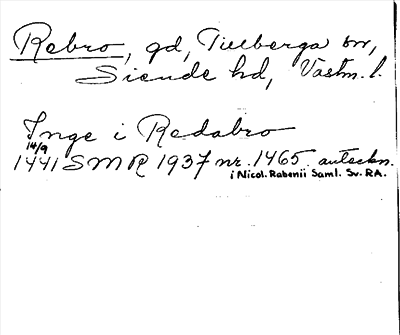 Rebro, gd, Tillberga sn,
Siende hd, Västm. l.
Inge i Redabro
14/9
1441 SMR 1937 nr. 1465. anteckn.
i Nicol. Rabenii Saml. Sv. RA.